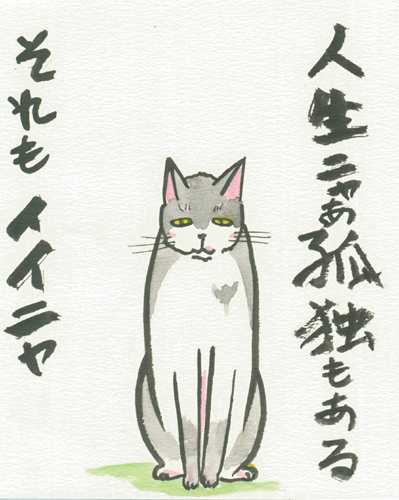 人生ニャあ孤独もある
それもイイニャ